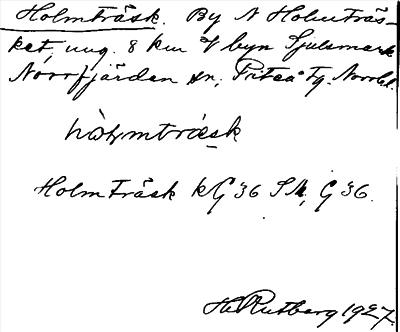 Holmträsk. By N Holmträs-
ket, ung. 8 km V byn Sjulsmark
Norrfjärden sn, Piteå Tg. Norrb.l.
hòlmtræsk
Holmträsk kG 36 SM, G 36.
H. Rutberg 1927.